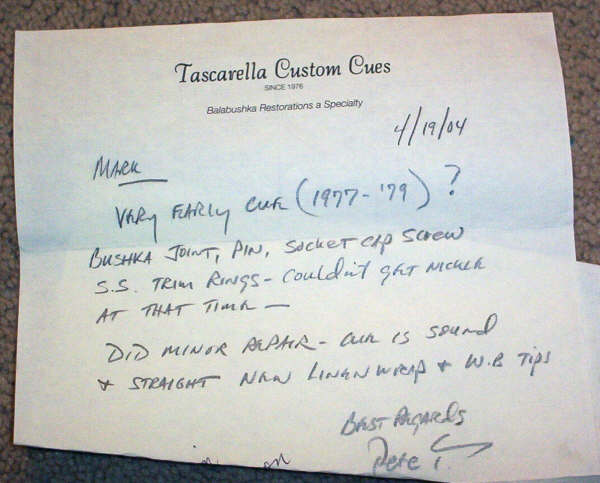 Tascarella Custom Cues
SINCE 1976
Balabushka Restorations a Specialty
4/19/04
MARK
VERY EARLY CUE (1977-'79) ?
BUSHKA JOINT, PIN, SOCKET CAP SCREW
S.S. TRIM RINGS - COULDN'T GET NICKEL
AT THAT TIME —
DID MINOR REPAIR - CUE IS SOUND
& STRAIGHT NEW LINEN WRAP & W.B TIPS
BEST REGARDS
Pete T.